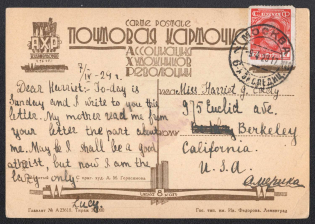 CARTE POSTALE
ПОЧТОВАЯ КАРТОЧКА
АХР
АССОЦИАЦИЯ
ХУДОЖНИКОВ
РЕВОЛЮЦИИ
МОСКВА
7/IV-29 г.
Dear Harriet: To-day is
Sunday and I write to you this
letter. My mother read me from
your letter the part about
me. May be I shall be a good
artist, but now I am the
lazy only
Lucy.
Miss Harriet G. Eddy
975 Euclid ave.
Berkeley
California.
U.S.A
Америка
Главлит № А 25918. Тираж
Гос. тип. им. Ив. Федорова, Ленинград